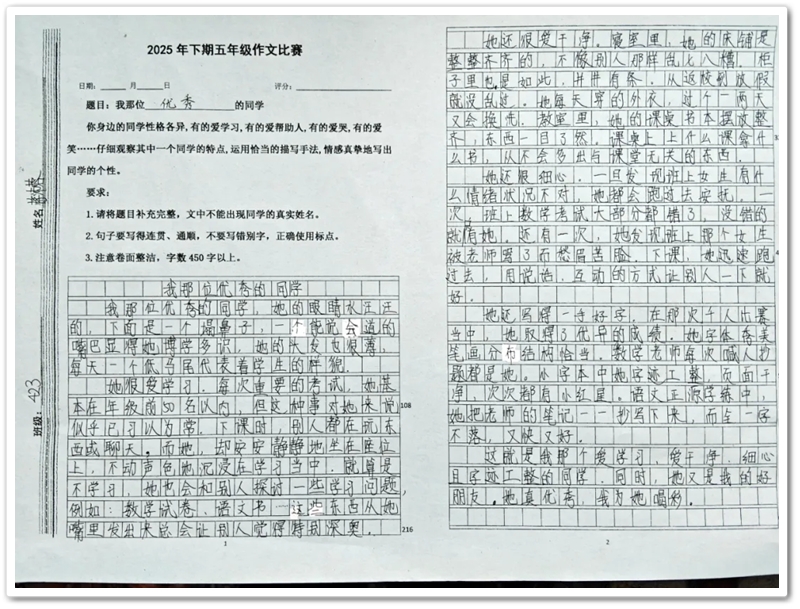 2025年下期五年级作文比赛
日期：____月____日 评分：
题目：我那位 优秀 的同学
你身边的同学性格各异,有的爱学习,有的爱帮助人,有的爱哭,有的爱
笑……仔细观察其中一个同学的特点,运用恰当的描写手法,情感真挚地写出
同学的个性。
要求：
1.请将题目补充完整，文中不能出现同学的真实姓名。
2.句子要写得连贯、通顺，不要写错别字，正确使用标点。
3.注意卷面整洁，字数450字以上。
姓名
班级： 423
我那位优秀的同学
我那位优秀的同学，她的眼睛水汪汪
的，下面是一个塌鼻子，一个能说会道的
嘴巴显得她博学多识，她的头发也很薄，
每天一个低马尾代表着学生的样貌。
她很爱学习．每次重要的考试，她基
本在年级前50名以内，但这种事对她来说
似乎已习以为常．下课时，别人都在玩东
西或聊天．而她，却安安静静地坐在座位
上，不动声色地沉浸在学习当中．就算是
不学习，她也会和别人探讨一些学习问题，
例如：数学试卷、语文书…这些东西从她
嘴里发出来总会让别人觉得特别深奥。
108
216
1
她还很爱干净。寝室里，她的床铺是
整整齐齐的，不像别人那样乱七八糟，柜
子里也是如此，井井有条．从返校到放假
就没乱过．她每天穿的外衣，过个一两天
又会换洗．教室里，她的课桌书本摆放整
齐，东西一目了然。课桌上上什么课拿什
么书，从不会多出与课堂无关的东西．
她还很细心．一旦发现班上女生有什
么情绪状况不对，她都会跑过去安抚．一
次，班上数学考试大部分都错了，没错的
就有她．还有一次，她发现班上那个女生
被老师骂了而愁眉苦脸．下课，她迅速跑
过去，用说话、互动的方式让别人一下就
好．
她还写得一手好字．在那次千人比赛
当中，她取得了优异的成绩．她字体秀美
笔画分布结构恰当．数学老师每次喊人抄
题都是她。小字本中她字迹工整，页面干
净，次次都有小红星。语文正源学练中，
她把老师的笔记一一抄写下来，而且一字
不落，又快又好．
这就是我那个爱学习、爱干净、细心
且字迹工整的同学．同时，她又是我的好
朋友．她真优秀，我为她喝彩．
2